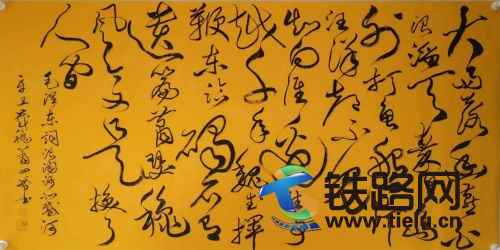 大雨落幽燕白
浪滔天秦皇岛
外打鱼船一片
汪洋都不见
知向谁边往事
越千年魏武挥
鞭东临碣石有
遗篇萧瑟穐
风今又是换了
人间
毛泽东词浪淘沙北戴河
铁路网
www.tielu.cn